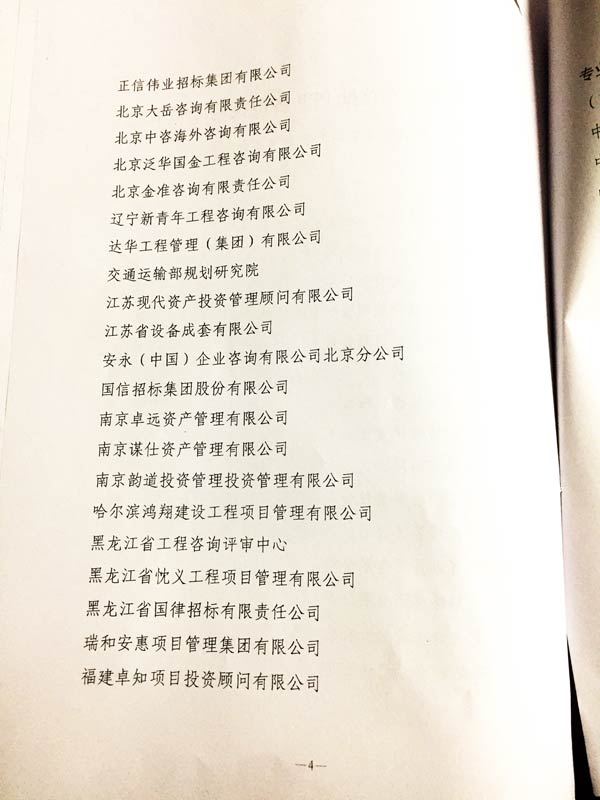 正信伟业招标集团有限公司
北京大岳咨询有限责任公司
北京中咨海外咨询有限公司
北京泛华国金工程咨询有限公司
北京金准咨询有限责任公司
辽宁新青年工程咨询有限公司
达华工程管理（集团）有限公司
交通运输部规划研究院
江苏现代资产投资管理顾问有限公司
江苏省设备成套有限公司
安永（中国）企业咨询有限公司北京分公司
国信招标集团股份有限公司
南京卓远资产管理有限公司
南京谋仕资产管理有限公司
南京韵道投资管理投资管理有限公司
哈尔滨鸿翔建设工程项目管理有限公司
黑龙江省工程咨询评审中心
黑龙江省忱义工程项目管理有限公司
黑龙江省国律招标有限责任公司
瑞和安惠项目管理集团有限公司
福建卓知项目投资顾问有限公司
—4—